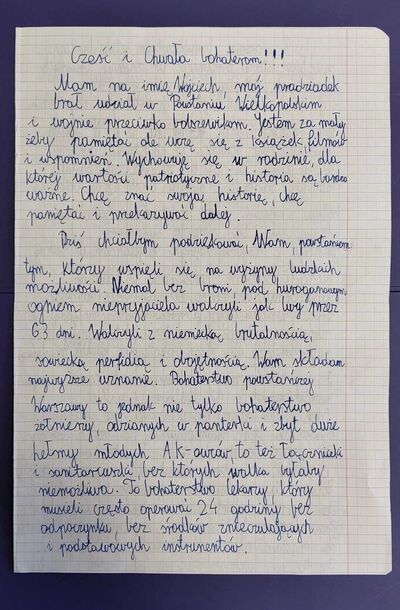 Cześć i Chwała bohaterom!!!
Mam na imię Wojciech, mój pradziadek
brał udział w Powstaniu Wielkopolskim
i wojnie przeciwko bolszewikom. Jestem za mały
żeby pamiętać ale uczę się z książek, filmów
i wspomnień. Wychowuję się w rodzinie, dla
której wartości patriotyczne i historia są bardzo
ważne. Chcę znać swoją historię, chcę
pamiętać i przekazywać dalej.
Dziś chciałbym podziękować Wam, powstańcom
tym, którzy wspięli się na wyżyny ludzkich
możliwości. Niemal bez broni, pod huraganowym
ogniem nieprzyjaciela walczyli jak lwy przez
63 dni. Walczyli z niemiecką brutalnością,
sowiecką perfidią i obojętnością. Wam składam
najwyższe uznanie. Bohaterstwo powstańczej
Warszawy to jednak nie tylko bohaterstwo
żołnierzy, odzianych w panterki i zbyt duże
hełmy młodych AK-owców, to też łączniczki
i sanitariuszki bez których walka byłaby
niemożliwa. To bohaterstwo lekarzy, którzy
musieli często operować 24 godziny bez
odpoczynku, bez środków znieczulających
i podstawowych instrumentów.